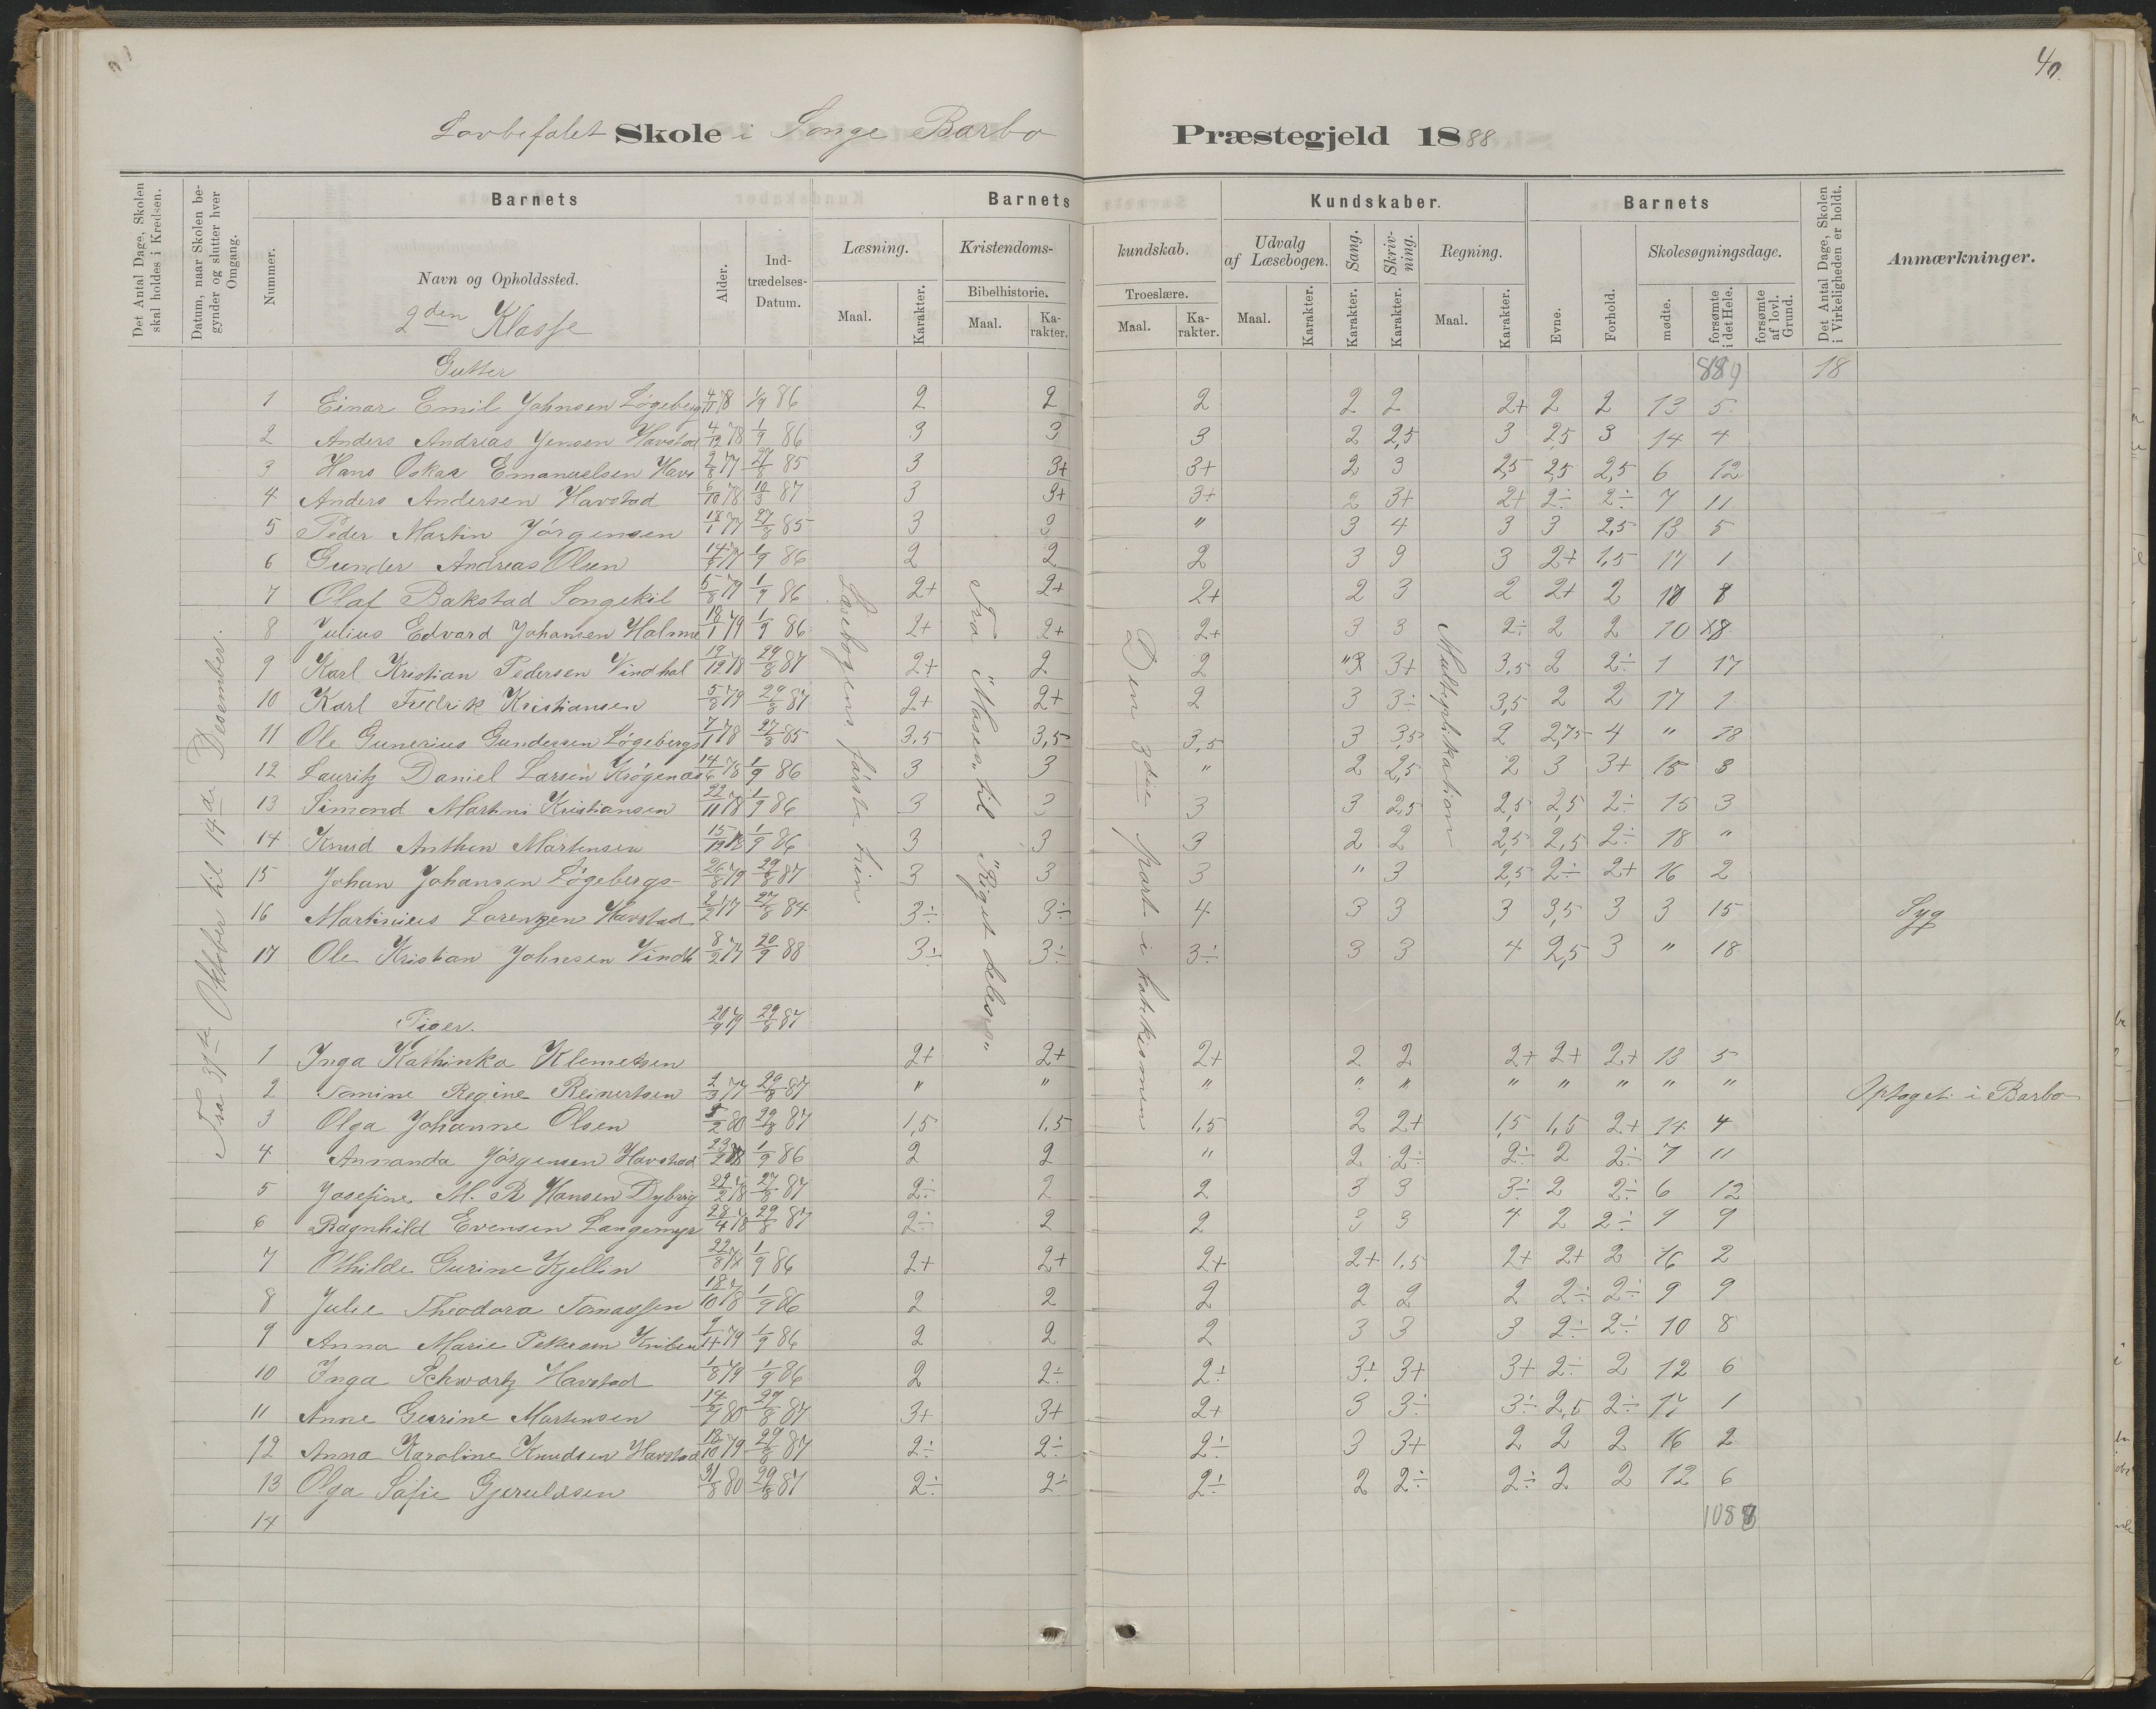 40.
Lovbefalet Skole i Songe Barbo Præstegjeld 1888
Det Antal Dage, Skolen skal holdes i Kredsen.
Datum, naar Skolen begynder og slutter hver Omgang.
Barnets
Nummer.
Navn og Opholdssted.
2den Klasse
Alder.
Indtrædelses-Datum.
Barnets Kundskaber.
Læsning.
Maal.
Karakter.
Kristendomskundskab.
Bibelhistorie.
Maal.
Karakter.
Troeslære.
Maal.
Karakter.
Udvalg af Læsebogen.
Maal.
Karakter.
Sang.
Karakter.
Skrivning.
Karakter.
Regning.
Maal.
Karakter.
Barnets
Evne.
Forhold.
Skolesøgningsdage.
mødte.
forsømte i det Hele.
forsømte af lovl. Grund.
Det Antal Dage, Skolen i Virkeligheden er holdt.
Anmærkninger.
Oktober til 14de Desember.
Læsebogens første trin
Fra "Moses" til "Riget deles"
Den 3die part i katekismen
Multiplikation
Gutter 18
1 Einar Emil Johnsen Løgeberg 4/11 78 1/9 86 2 2 2 2 2 2+ 2 2 13 5
2 Anders Andreas Jensen Havstad 4/12 78 1/9 86 3 3 3 2 2,5 3 2,5 3 14 4
3 Hans Oskar Emanuelsen Havs 2/8 77 27/8 85 3 3+ 3+ 2 3 2,5 2,5 2,5 6 12
4 Anders Andersen Havstad 6/10 78 10/3 87 3 3+ 3+ 2 3+ 2+ 2÷ 2÷ 7 11
5 Peder Martin Jørgensen 18/1 77 27/8 85 3 3 " 3 4 3 3 2,5 13 5
6 Gunder Andreas Olsen 77 1/9 86 2 2 2 3 3 3 2+ 1,5 17 1
7 Olaf Bakstad Songekil 5/8 79 1/9 86 2+ 2+ 2+ 2 3 2 2+ 2
8 Julius Edvard Johansen Holme 18/1 79 1/9 86 2+ 2+ 2+ 3 3 2÷ 2 2 10 8
9 Karl Kristian Pedersen Vindhol 19/12 78 29/8 87 2+ 2 2 " 3+ 3,5 2 2÷ 1 17
10 Karl Fredrik Kristiansen 5/8 79 29/8 87 2+ 2+ 2 3 3÷ 3,5 2 2 17 1
11 Ole Gunerius Gundersen Løgebergs 7/1 78 27/8 85 3,5 3,5 3,5 3 3,5 2 2,75 4 " 18
12 Lauritz Daniel Larsen Krøgenæs 14/6 78 1/9 86 3 3 " 2 2,5 2 3 3+ 15 3
13 Simond Martini Kristiansen 22/11 78 1/9 86 3 3 3 3 2,5 2,5 2,5 2÷ 15 3
14 Knud Anthon Martensen 15/12 78 1/9 86 3 3 3 2 2 2,5 2,5 2÷ 18 "
15 Johan Johansen Løgebergs- 26/8 79 29/8 87 3 3 3 " 3 2,5 2÷ 2+ 16 2
16 Martinius Lorenzen Havstad 2/2 77 27/8 84 3÷ 3÷ 4 3 3 3 3,5 3 3 15 Syg
17 Ole Kristian Johnsen Vindh 8/2 77 20/9 88 3÷ 3÷ 3÷ 3 3 4 2,5 3 " 18
Piger. 20/9 79 29/8 87
1 Inga Kathinka Klemetsen 2+ 2+ 2+ 2 2 2+ 2+ 2+ 13 5
2 Tomine Regine Reinertsen 2/3 77 29/8 87 " " " " " " " " " " Optaget i Barbo
3 Olga Johanne Olsen 5/2 80 29/8 87 1,5 1,5 1,5 2 2+ 1,5 1,5 2+ 14 4
4 Annanda Jørgensen Havstad 23/2 78 1/9 86 2 2 " 2 2÷ 2÷ 2 2÷ 7 11
5 Josefine M. R Hansen Dybvig 22/2 78 27/8 87 2÷ 2 2 3 3 3÷ 2 2÷ 6 12
6 Ragnhild Evensen Langemyr 28/4 78 29/8 87 2÷ 2 2 3 3 4 2 2÷ 9 9
7 Othilde Gurine Kjellin 22/8 78 1/9 86 2+ 2+ 2+ 2+ 1,5 2+ 2+ 2 16 2
8 Julie Theodora Tomassen 18/10 78 1/9 86 2 2 2 2 2 2 2÷ 2÷ 9 9
9 Anna Marie Pettersen 79 1/9 86 2 2 2 3 3 3 2÷ 2÷ 10 8
10 Inga Schwartz Havstad 1/8 79 1/9 86 2 2÷ 2÷ 3÷ 3+ 3+ 2÷ 2 12 6
11 Anne Gurine Martensen 14/7 80 29/8 87 3+ 3+ 2+ 3 3÷ 3÷ 2,5 2÷ 17 1
12 Anna Karoline Knudsen Havstad 18/10 79 29/8 87 2÷ 2÷ 2÷ 3 3+ 2 2 2 16 2
13 Olga Sofie Gjeruldsen 21/8 80 29/8 87 2÷ 2÷ 2÷ 2 2÷ 2÷ 2 2 12 6
14